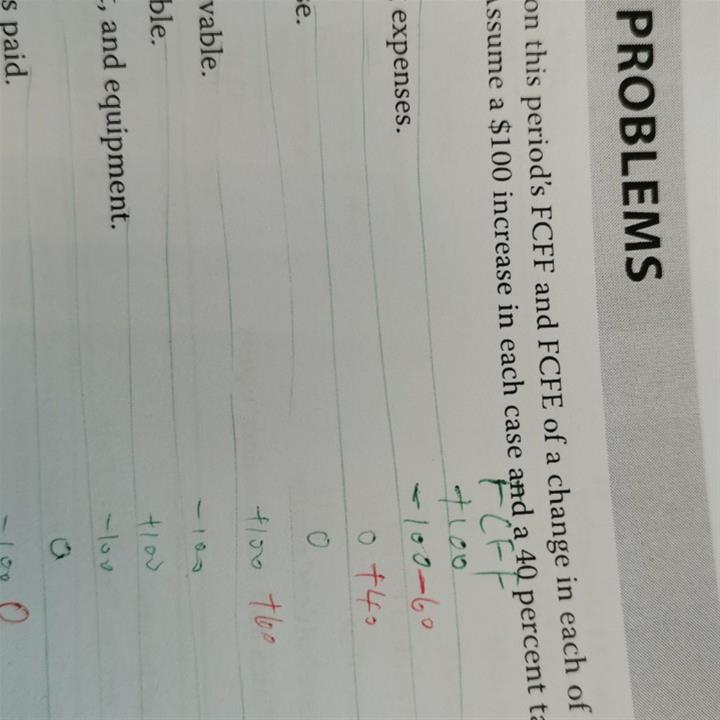 PROBLEMS
on this period's FCFF and FCFE of a change in each of
Assume a $100 increase in each case and a 40 percent
FCFF
+100
expenses. -100 -60
0 +40
0
+100 +60
vable. -100
ble. +100
, and equipment. -100
0
s paid. -100 0